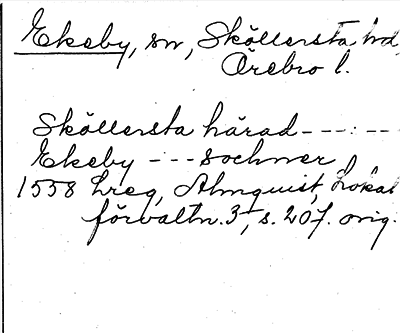 Ekeby, sn, Sköllersta hd,
Örebro l.
Sköllersta härad - - - : - -
Ekeby - - - sochner
1558 Lreg, Almquist, Lokal
förvaltn. 3, s. 207. orig.